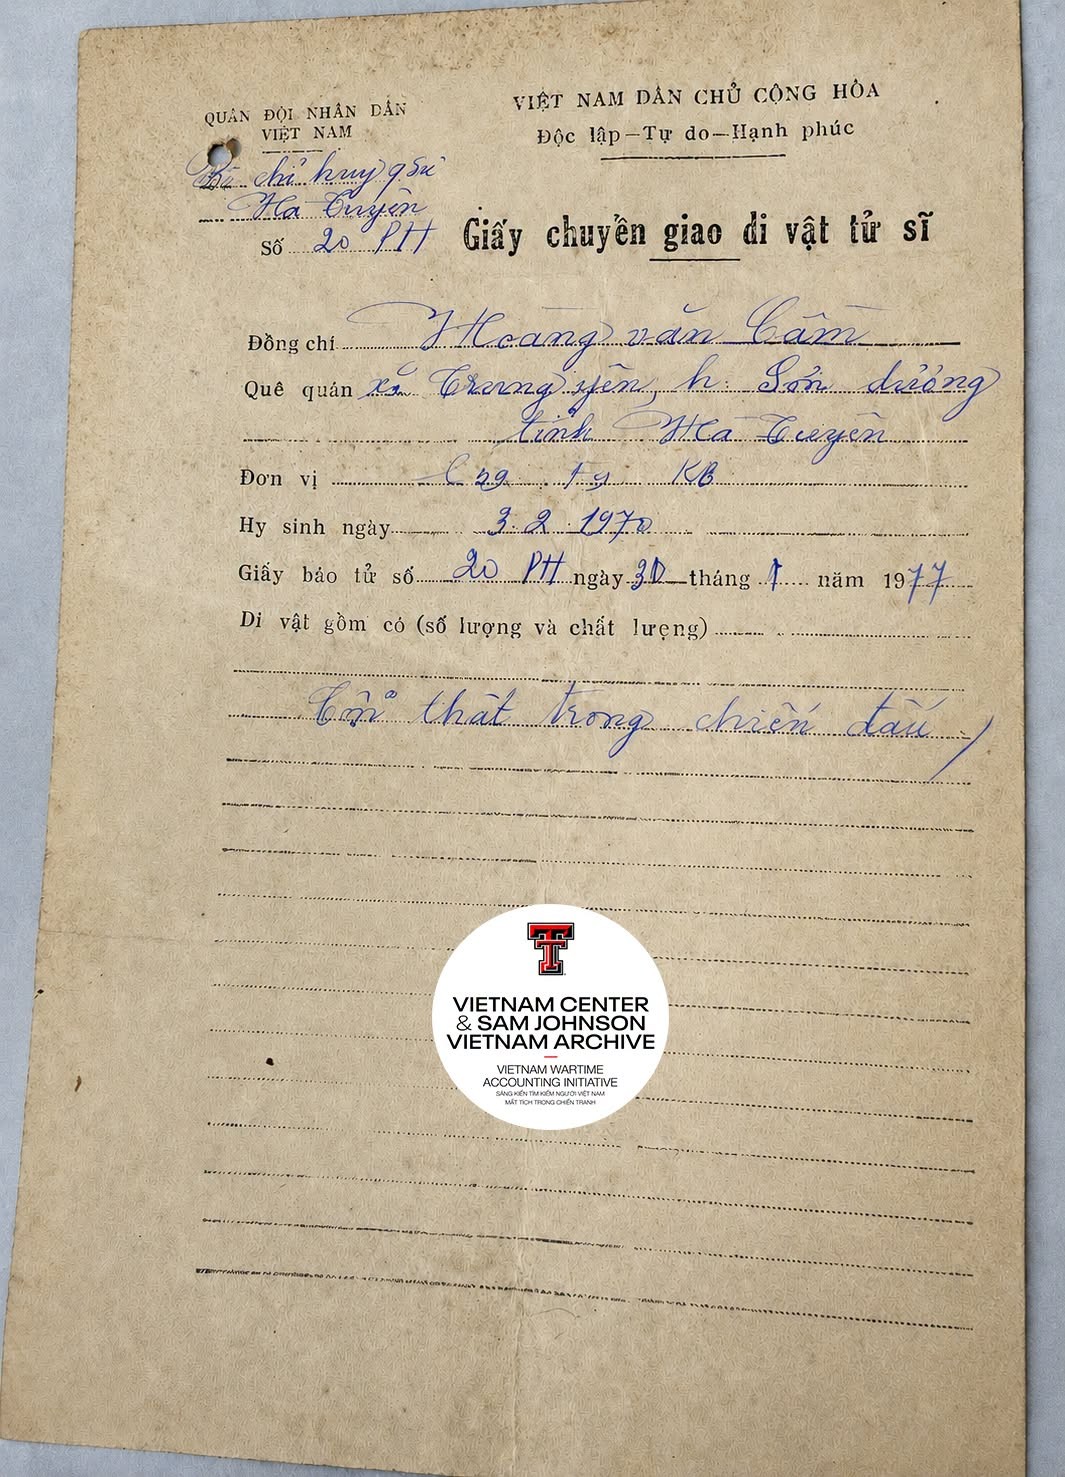 QUÂN ĐỘI NHÂN DÂN
VIỆT NAM
VIỆT NAM DÂN CHỦ CỘNG HÒA
Độc lập—Tự do—Hạnh phúc
Bộ chỉ huy qsự
Hà Tuyên
Số 20 PH
Giấy chuyển giao di vật tử sĩ
Đồng chí Hoàng văn Cầm
Quê quán xã Trung yên, h. Sơn dương
tỉnh Hà Tuyên
Đơn vị KB
Hy sinh ngày 3.2.1970
Giấy báo tử số 20 PH ngày 30 tháng 1 năm 1977
Di vật gồm có (số lượng và chất lượng)
tổn thất trong chiến đấu
VIETNAM CENTER
& SAM JOHNSON
VIETNAM ARCHIVE
VIETNAM WARTIME
ACCOUNTING INITIATIVE
SÁNG KIẾN TÌM KIẾM NGƯỜI VIỆT NAM
MẤT TÍCH TRONG CHIẾN TRANH